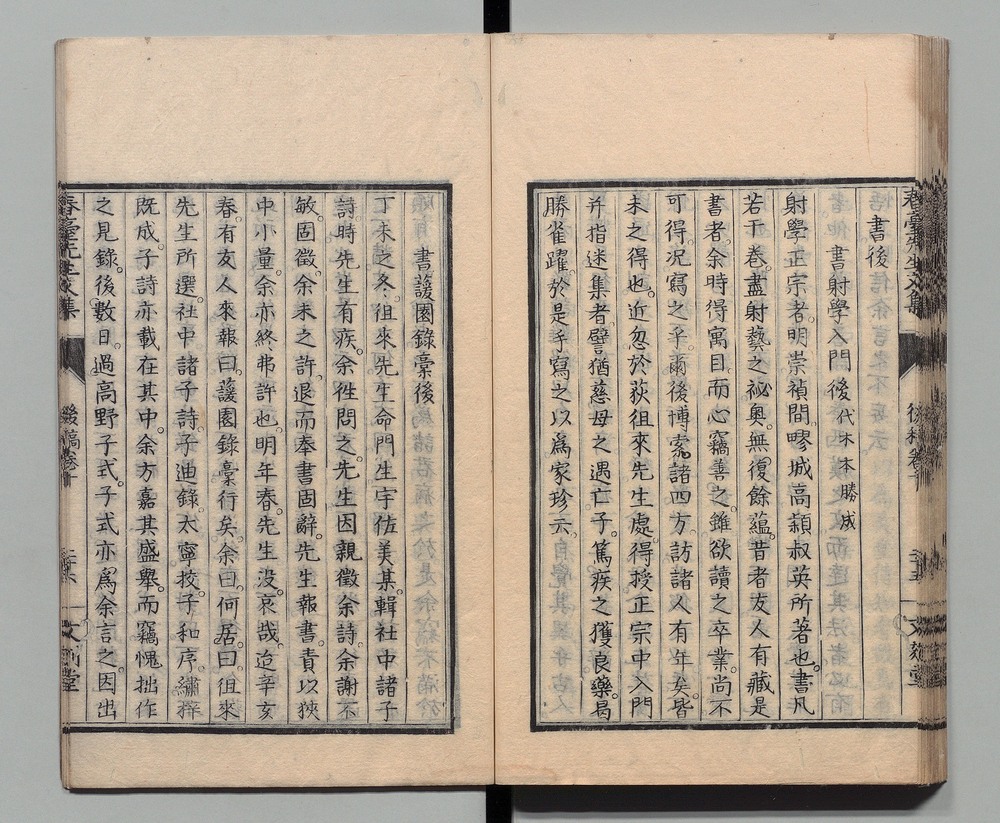 書後
書射學入門後 代木本勝成
射學正宗者。明崇禎間。疁城高穎叔英所著也。書凡
若干卷。盡射藝之祕奧。無復餘蘊。昔者友人有藏是
書者。余時得寓目。而心竊善之。雖欲讀之卒業。尚不
可得。況寫之乎。爾後博索諸四方。訪諸人有年矣。皆
未之得也。近忽於荻徂來先生處。得授正宗中入門
并指迷集者。譬猶慈母之遇亡子。篤疾之獲良藥。曷
勝雀躍。於是手寫之。以爲家珍云。
書蘐園錄稾後
丁未之冬。徂來先生命門生宇佐美某。輯社中諸子
詩。時先生有疾。余往問之。先生因親徵余詩。余謝不
敏。固徵。余未之許。退而奉書固辭。先生報書。責以狹
中小量。余亦終弗許也。明年春。先生沒。哀哉。迨辛亥
春。有友人來報曰。蘐園錄稾行矣。余曰。何居。曰。徂來
先生所選。社中諸子詩。子迪錄。太寧挍。子和序。繡梓
既成。子詩亦載在其中。余方嘉其盛舉。而竊愧拙作
之見錄。後數日。過高野子式。子式亦爲余言之。因出
春臺先生文集
後稿卷十